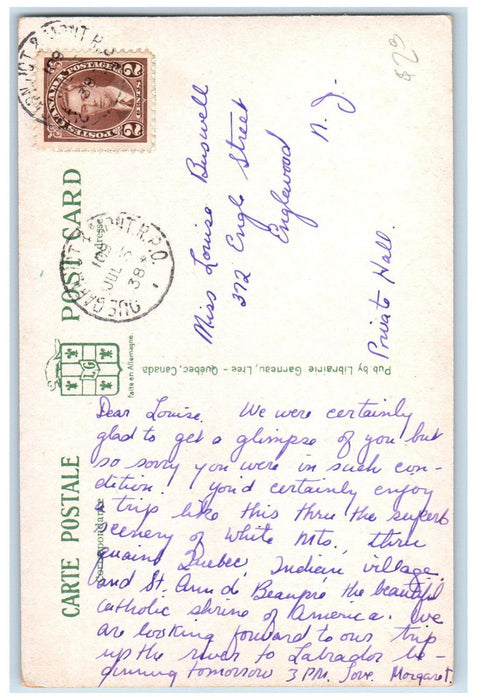 POST CARD
Adresse
CANADA POSTAGE
2 CENTS 2
POSTES
QUE
JUL
38
R.P.O.
$23
Miss Louise Buswell
372 Engle Street
Englewood
N. J.
Private Hall.
Pub by Librairie Garneau, Ltee - Québec, Canada
LG
Faite en Allemagne
CARTE POSTALE
Correspondance
Dear Louise. We were certainly
glad to get a glimpse of you but
so sorry you were in such con-
dition. You'd certainly enjoy
a trip like this thru the superb
scenery of White Mts., thru
quaint Quebec, Indian village,
and St. Ann de Beaupré the beautiful
Catholic shrine of America. We
are looking forward to our trip
up the river to Labrador be-
ginning tomorrow 3 P.M. Love. Margaret.